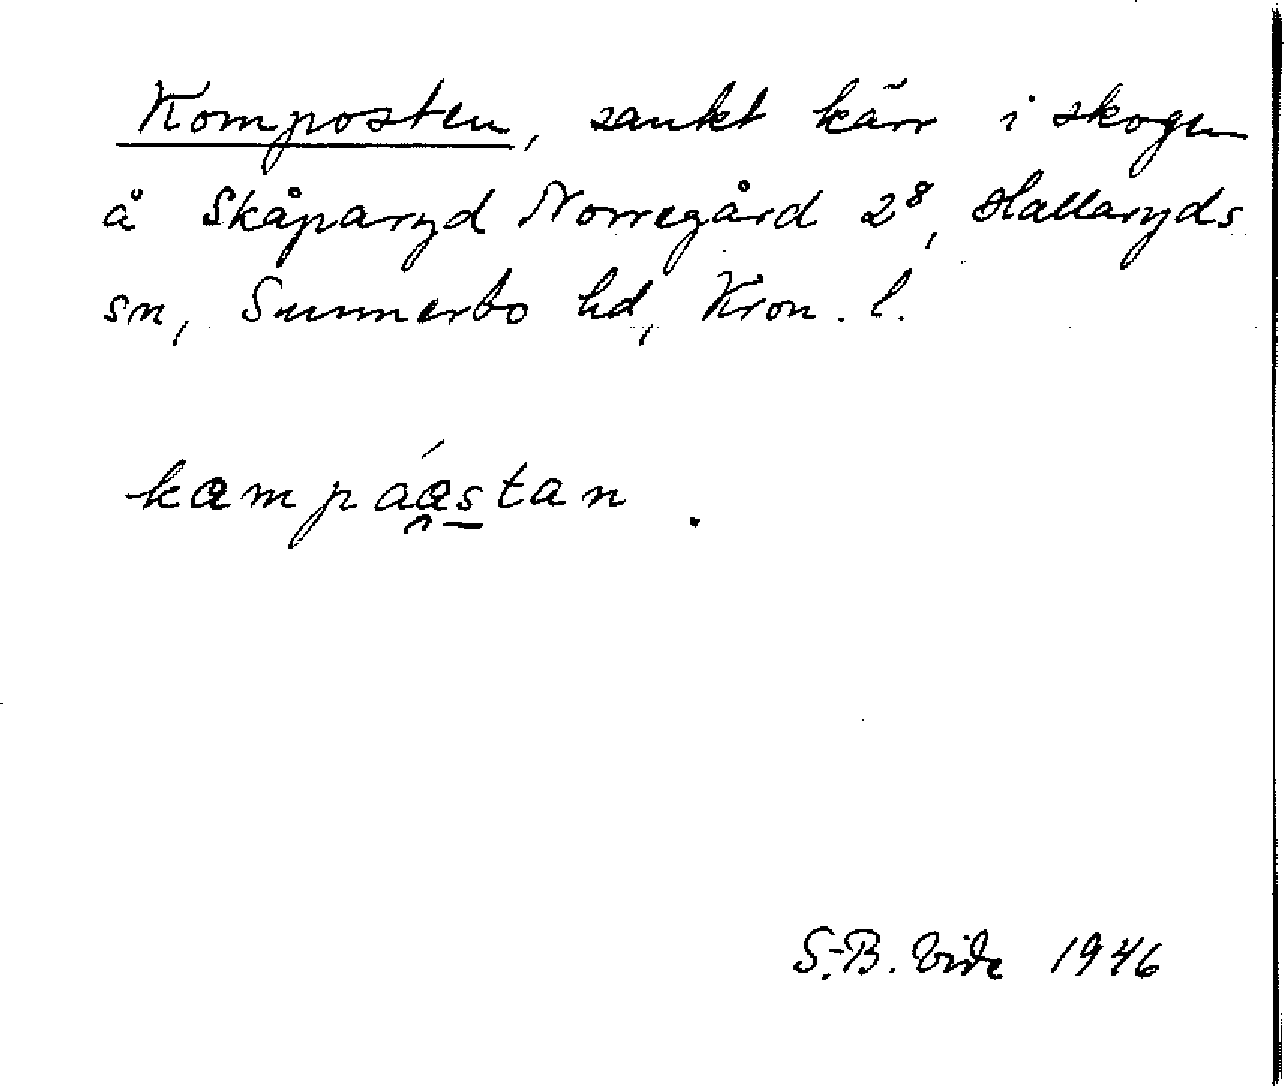 Komposten, sankt kärr i skogen
å Skåparyd Norregård 2⁸, Hallaryds
sn, Sunnerbo hd, Kron. l.
kampáastan.
S.-B. Vide 1946